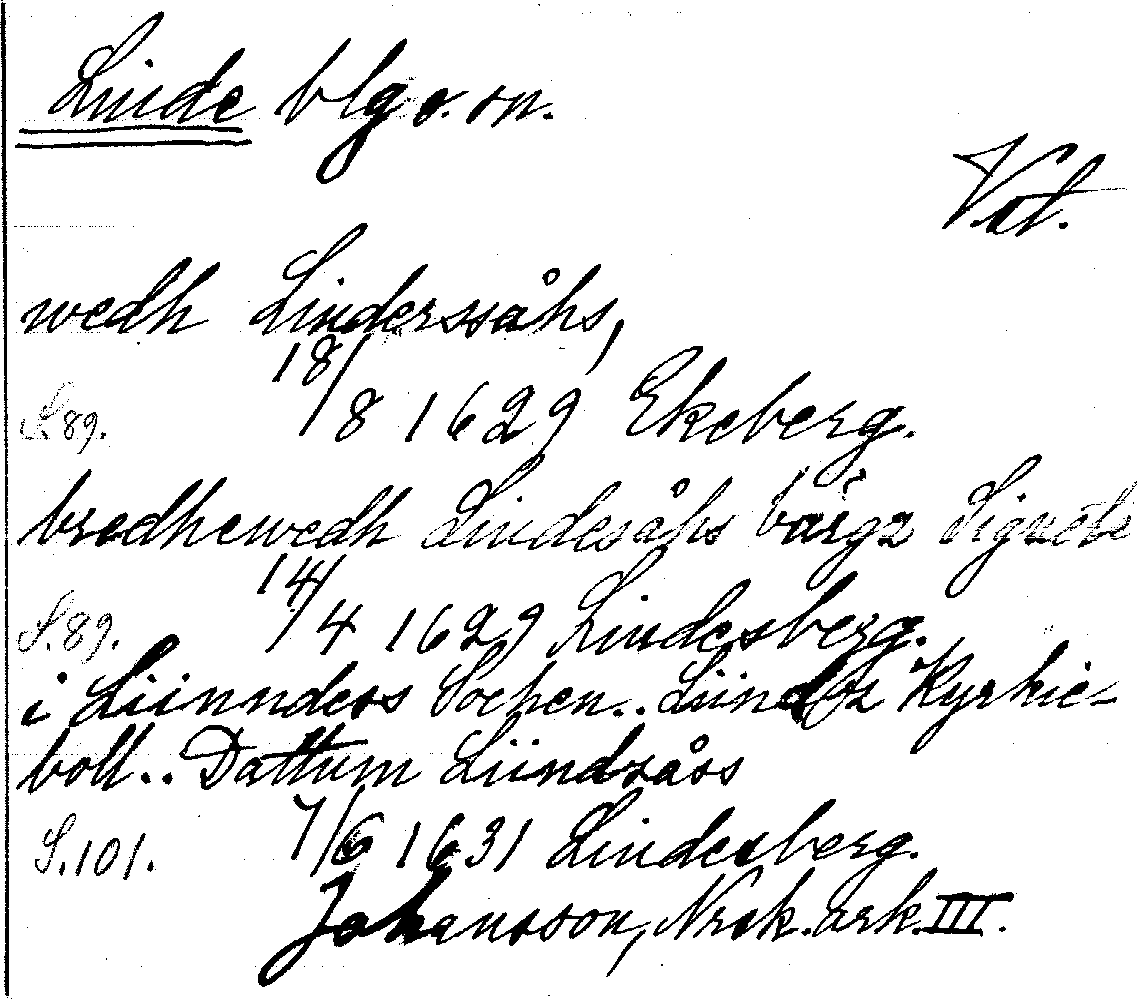 Linde blgs. sn.
Vst.
wedh Linderssåhs,
18/8 1629 Ekeberg.
S. 89.
bredhewedh Lindesåhs bärgz Signete
14/4 1629 Lindesberg.
S. 89.
i Liinnders Sochen.. Liindz Kyrkie-
boll.. Dattum Liindzåss
S. 101. 7/6 1631 Lindesberg.
Johansson, Nrsk. ark. III.